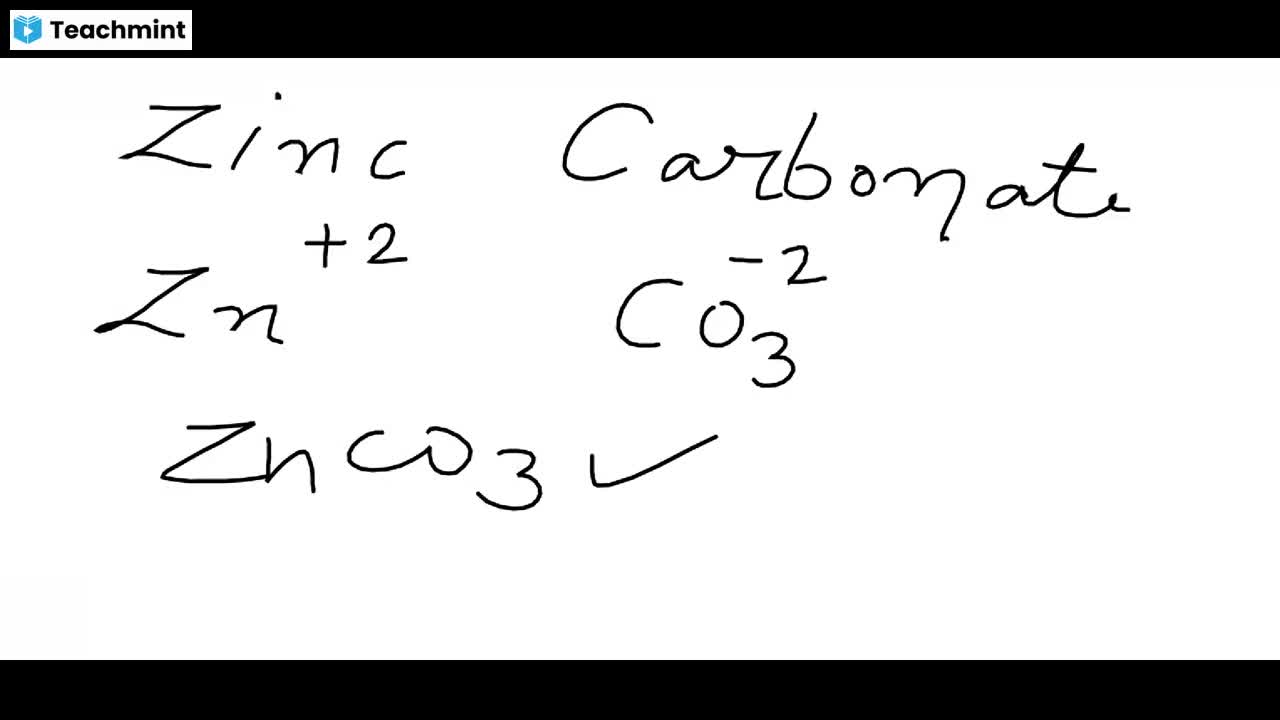 Teachmint
Zinc Carbonate
Zn+2 CO3-2
ZnCO3 ✓